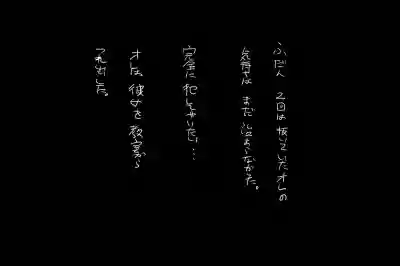 ふだん 2回は 抜いていたオレの
気持ちは まだ 治まらなかった。
完全に
オレは 彼女を 教室から
つれ出した。